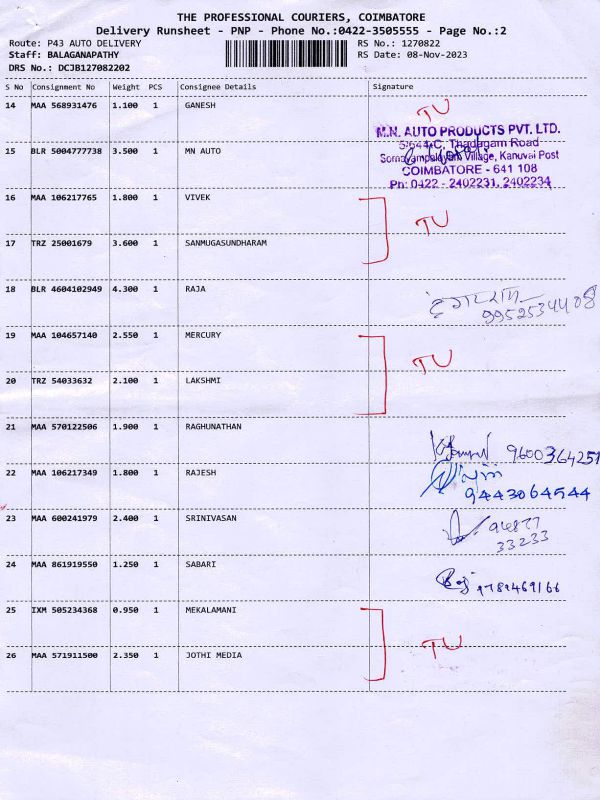 THE PROFESSIONAL COURIERS, COIMBATORE
Delivery Runsheet - PNP - Phone No.:0422-3505555 - Page No.:2
Route: P43 AUTO DELIVERY RS No.: 1270822
Staff: BALAGANAPATHY RS Date: 08-Nov-2023
DRS No.: DCJB127082202
S No Consignment No Weight PCS Consignee Details Signature
14 MAA 568931476 1.100 1 GANESH TU
M.N. AUTO PRODUCTS PVT. LTD.
5/644-C, Thadagam Road
15 BLR 5004777738 3.500 1 MN AUTO
Somayampalayam Village, Kanuvai Post
COIMBATORE - 641 108
Ph: 0422 - 2402231, 2402234
16 MAA 106217765 1.800 1 VIVEK
TU
17 TRZ 25001679 3.600 1 SANMUGASUNDHARAM
18 BLR 4604102949 4.300 1 RAJA
9952534408
19 MAA 104657140 2.550 1 MERCURY
TU
20 TRZ 54033632 2.100 1 LAKSHMI
21 MAA 570122506 1.900 1 RAGHUNATHAN
9600364251
22 MAA 106217349 1.800 1 RAJESH
9443064544
23 MAA 600241979 2.400 1 SRINIVASAN
94877
33233
24 MAA 861919550 1.250 1 SABARI
9789469166
25 IXM 505234368 0.950 1 MEKALAMANI
TU
26 MAA 571911500 2.350 1 JOTHI MEDIA